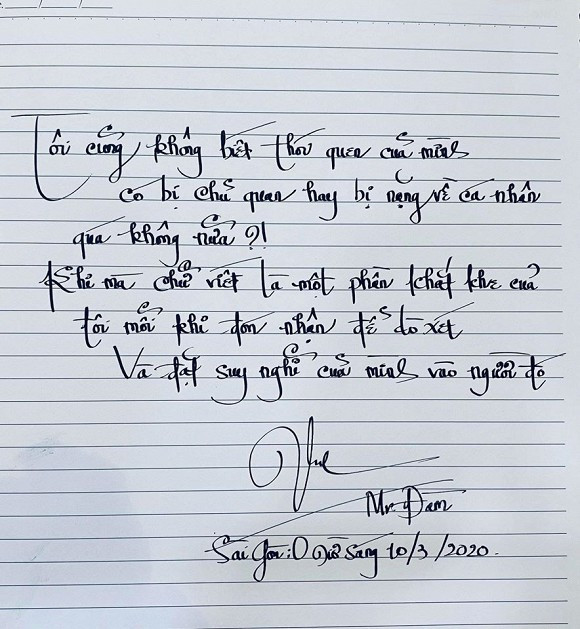 Tôi cũng không biết thói quen của mình
có bị chủ quan hay bị nặng về cá nhân
quá không nữa ?!
Khi mà chữ viết là một phần khắt khe của
tôi mỗi khi đón nhận để dò xét
Và đặt suy nghĩ của mình vào người đó
Mr. Đàm
Sài Gòn: 0 giờ sáng 10/3/2020.